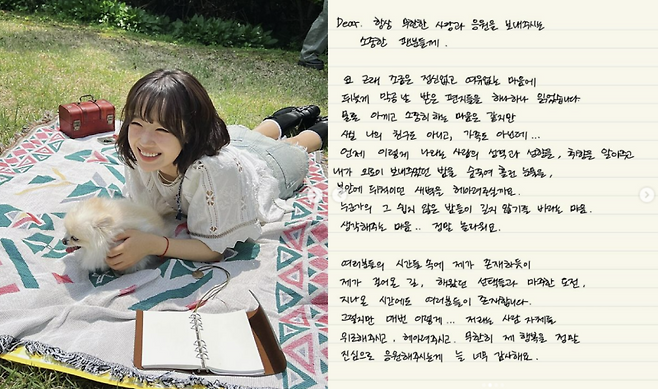 Dear. 항상 무한한 사랑과 응원을 보내주시는
소중한 팬분들께.
요 근래 조금은 정신없고 여유없는 마음에
뒤늦게 막공날 받은 편지들을 하나하나 읽었습니다
물론 아끼고 소중히 하는 마음은 같지만
사실 나의 친구도 아니고, 가족도 아닌데...
언제 이렇게 나라는 사람의 성격과 성향을, 취향을 알아주고
내가 오로이 보내주었던 밤을, 숨죽여 흘린 눈물을,
불안에 뒤척이던 새벽을 헤아려주실까요.
누군가의 그 쉽지 않은 밤들이 길지 않기를 바라는 마음.
생각해주는 마음.. 정말 놀라워요.
여러분들의 시간들 속에 제가 존재하듯이
제가 걸어온 길, 하였던 선택들과 마주한 도전,
지나온 시간에도 여러분들이 존재합니다.
그렇지만 매번 이렇게... 저라는 사람 자체를
위로해주시고, 헤아려주시고. 무한히 제 행복을 정말
진심으로 응원해주시는게 늘 너무 감사해요.